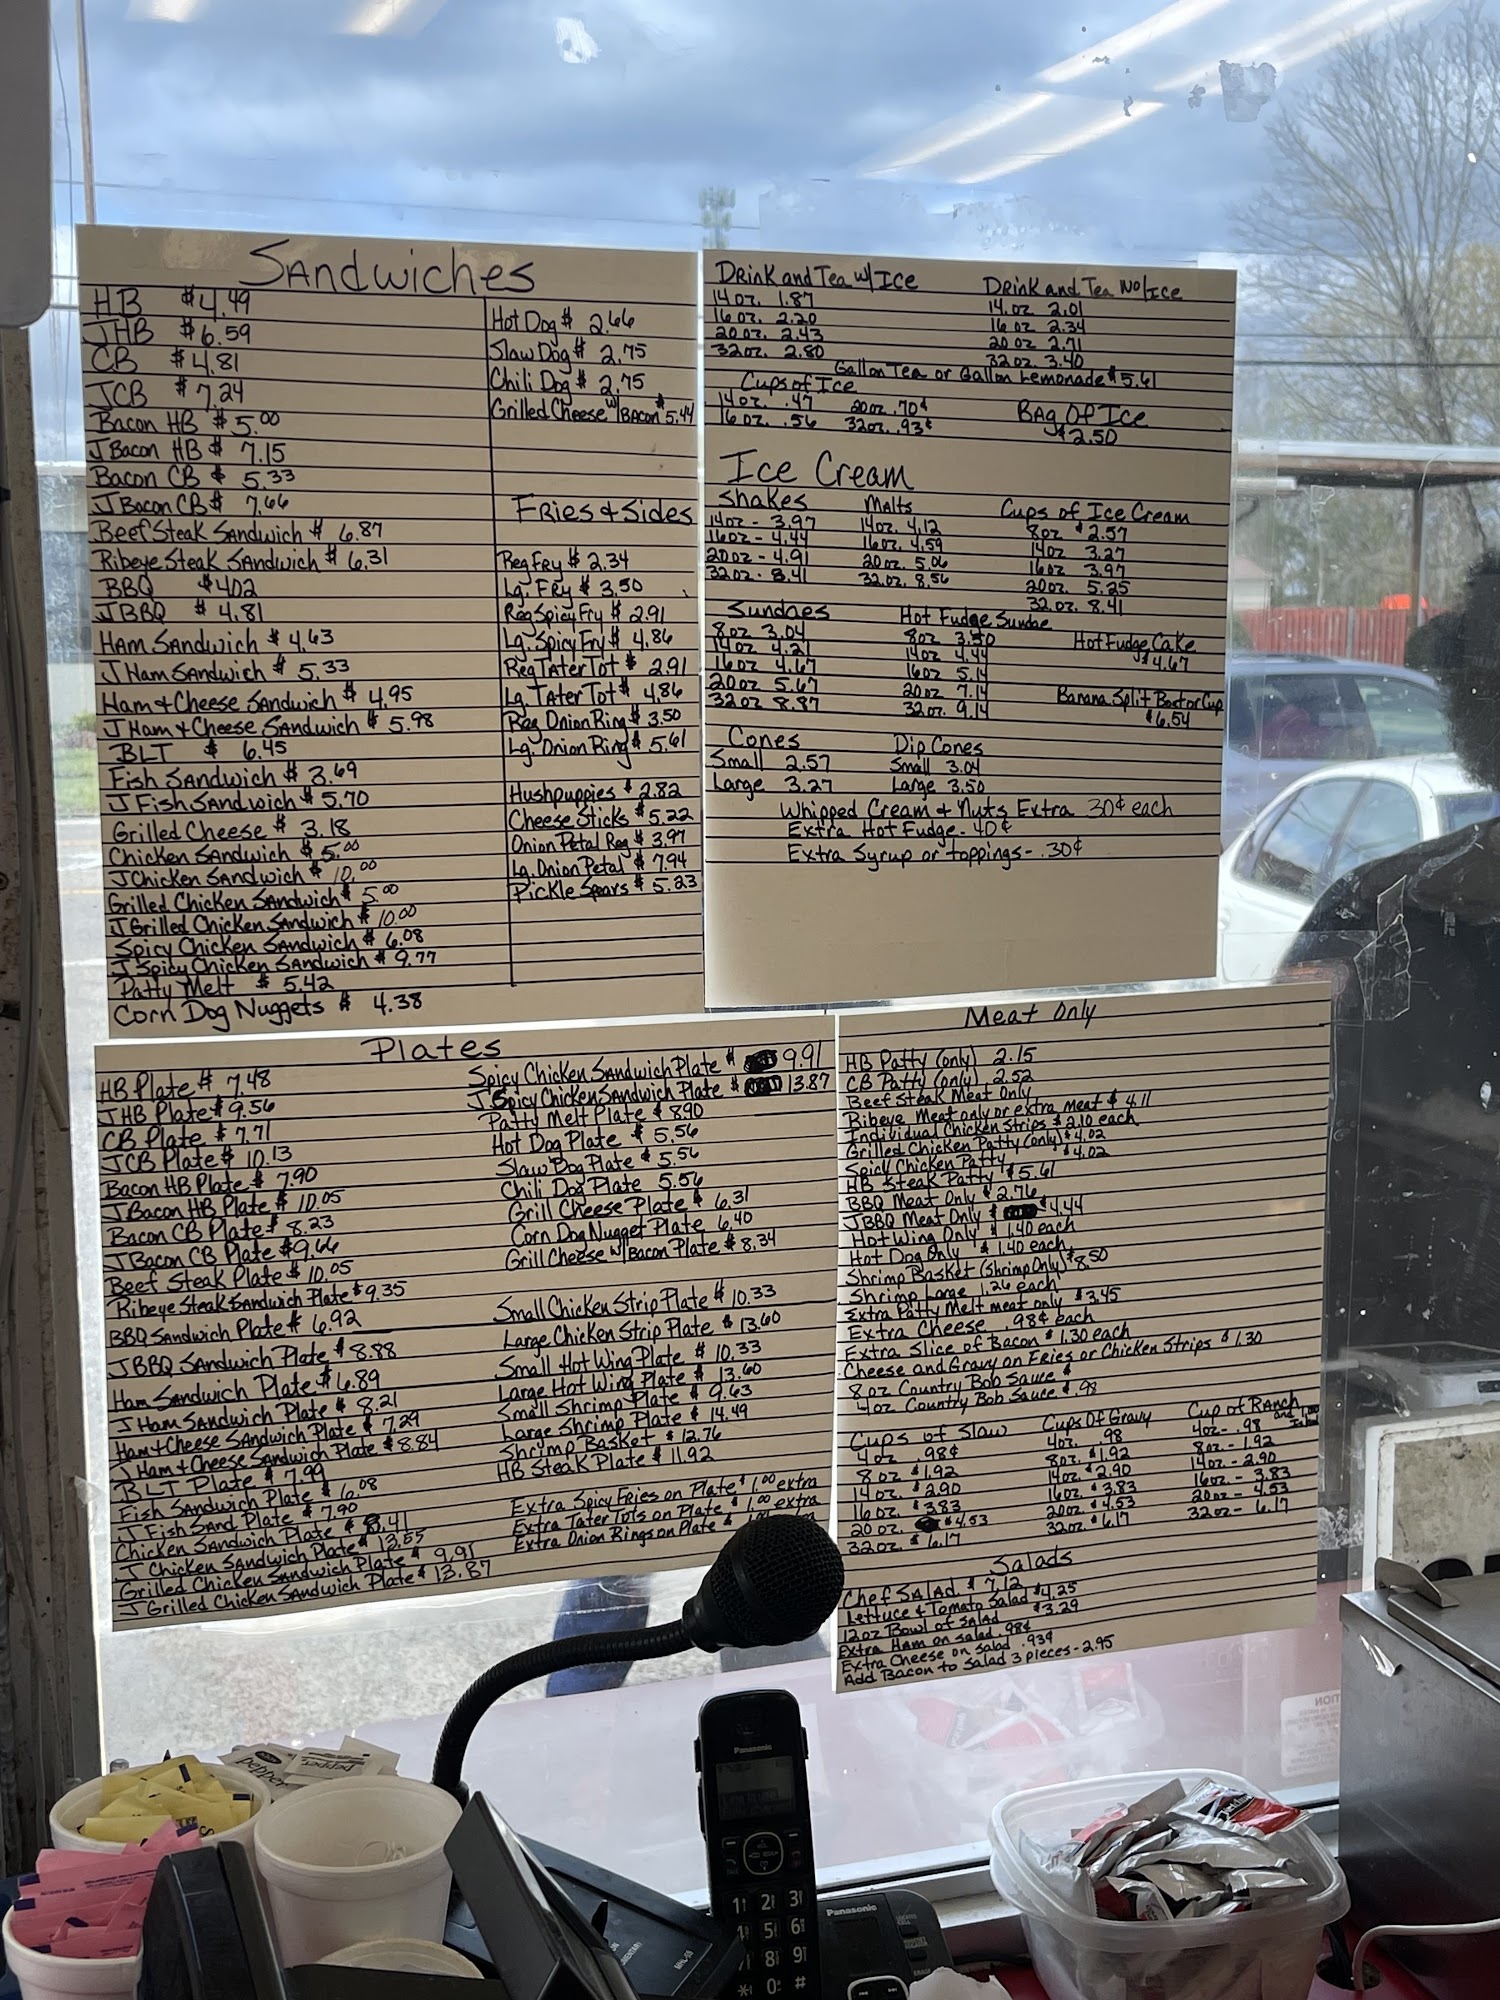 Sandwiches
HB $4.49
JHB $6.59
CB $4.81
JCB $7.24
Bacon HB $5.00
J Bacon HB $ 7.15
Bacon CB $ 5.33
J Bacon CB $ 7.66
Beef Steak Sandwich $ 6.87
Ribeye Steak Sandwich $ 6.31
BBQ $402
JBBQ $ 4.81
Ham Sandwich $ 4.63
J Ham Sandwich $ 5.33
Ham & Cheese Sandwich $ 4.95
J Ham & Cheese Sandwich $ 5.98
BLT $ 6.45
Fish Sandwich $ 3.69
J Fish Sandwich $ 5.70
Grilled Cheese $ 3.18
Chicken Sandwich $ 5.00
J Chicken Sandwich $ 10.00
Grilled Chicken Sandwich $ 5.00
J Grilled Chicken Sandwich $ 10.00
Spicy Chicken Sandwich $ 6.08
J Spicy Chicken Sandwich $ 9.77
Patty Melt $ 5.42
Corn Dog Nuggets $ 4.38
Hot Dog $ 2.66
Slaw Dog $ 2.75
Chili Dog $ 2.75
Grilled Cheese w/ Bacon $ 5.44
Fries & Sides
Reg Fry $ 2.34
Lg. Fry $ 3.50
Reg Spicy Fry $ 2.91
Lg. Spicy Fry $ 4.86
Reg Tater Tot $ 2.91
Lg. Tater Tot $ 4.86
Reg Onion Ring $ 3.50
Lg. Onion Ring $ 5.61
Hushpuppies $ 2.82
Cheese Sticks $ 5.22
Onion Petal Reg $ 3.97
Lg. Onion Petal $ 7.94
Pickle Spears $ 5.23
Drink and Tea w/ Ice
14 oz. 1.87
16 oz. 2.20
20 oz. 2.43
32 oz. 2.80
Drink and Tea No/Ice
14. oz 2.01
16 oz 2.34
20 oz 2.71
32 oz. 3.40
Gallon Tea or Gallon Lemonade $5.61
Cups of Ice
14 oz. .47 20oz .70¢
16 oz. .56 32oz. .93¢
Bag Of Ice
$2.50
Ice Cream
Shakes
14oz - 3.97
16oz - 4.44
20oz - 4.91
32oz - 8.41
Malts
14oz. 4.12
16oz. 4.59
20 oz. 5.06
32 oz. 8.56
Cups of Ice Cream
8oz $2.57
14oz 3.27
16oz 3.97
20oz 5.25
32 oz. 8.41
Sundaes
8oz 3.04
14oz 4.21
16oz 4.67
20oz 5.67
32oz 8.87
Hot Fudge Sundae
8oz 3.50
14oz 4.44
16oz 5.14
20z 7.14
32oz. 9.14
Hot Fudge Cake
$4.67
Banana Split Boat or Cup
$6.54
Cones
Small 2.57
Large 3.27
Dip Cones
Small 3.04
Large 3.50
Whipped Cream & Nuts Extra 30¢ each
Extra Hot Fudge - 40¢
Extra Syrup or toppings - .30¢
Plates
HB Plate $ 7.48
JHB Plate $ 9.56
CB Plate $ 7.71
JCB Plate $ 10.13
Bacon HB Plate $ 7.90
J Bacon HB Plate $ 10.05
Bacon CB Plate $ 8.23
J Bacon CB Plate $ 9.66
Beef Steak Plate $ 10.05
Ribeye Steak Sandwich Plate $ 9.35
BBQ Sandwich Plate $ 6.92
JBBQ Sandwich Plate $ 8.88
Ham Sandwich Plate $ 6.89
J Ham Sandwich Plate $ 8.21
Ham & Cheese Sandwich Plate $ 7.29
J Ham & Cheese Sandwich Plate $ 8.84
BLT Plate $ 7.99
Fish Sandwich Plate $ 6.08
J Fish Sand Plate $ 7.90
Chicken Sandwich Plate $ 8.41
J Chicken Sandwich Plate $ 12.55
Grilled Chicken Sandwich Plate $ 9.91
J Grilled Chicken Sandwich Plate $ 13.87
Spicy Chicken Sandwich Plate $ 9.91
J Spicy Chicken Sandwich Plate $ 13.87
Patty Melt Plate $ 8.90
Hot Dog Plate $ 5.56
Slaw Dog Plate $ 5.56
Chili Dog Plate 5.56
Grill Cheese Plate $ 6.31
Corn Dog Nugget Plate 6.40
Grill Cheese w/ Bacon Plate $ 8.34
Small Chicken Strip Plate $ 10.33
Large Chicken Strip Plate $ 13.60
Small Hot Wing Plate $ 10.33
Large Hot Wing Plate $ 13.60
Small Shrimp Plate $ 9.63
Large Shrimp Plate $ 14.49
Shrimp Basket $ 12.76
HB Steak Plate $ 11.92
Extra Spicy Fries on Plate $ 1.00 extra
Extra Tater Tots on Plate $ 1.00 extra
Extra Onion Rings on Plate $
Meat Only
HB Patty (only) 2.15
CB Patty (only) 2.52
Beef Steak Meat Only
Ribeye Meat only or extra meat $ 4.11
Individual Chicken Strips $ 2.10 each
Grilled Chicken Patty (only) $ 4.02
Spicy Chicken Patty $4.02
HB Steak Patty $ 5.61
BBQ Meat Only $ 2.76
JBBQ Meat Only $ 4.44
Hot Wing Only $ 1.40 each
Hot Dog Only $ 1.40 each
Shrimp Basket (Shrimp Only) $ 8.50
Shrimp Large 1.26 each
Extra Patty Melt meat only $ 3.45
Extra Cheese .98¢ each
Extra Slice of Bacon $ 1.30 each
Cheese and Gravy on Fries or Chicken Strips $ 1.30
8 oz Country Bob Sauce $
4oz Country Bob Sauce $ .98
Cups of Slaw
4 oz .98¢
8 oz $1.92
14 oz $2.90
16 oz $3.83
20 oz. $4.53
32 oz. $6.17
Cups Of Gravy
4oz. 98
8oz. $1.92
14oz $2.90
16oz $3.83
20oz $4.53
32oz. $6.17
Cup of Ranch
4oz- .98
8oz - 1.92
14oz - 2.90
16oz - 3.83
20oz - 4.53
32oz - 6.17
Salads
Chef Salad $ 7.12
Lettuce & Tomato Salad $4.25
12oz Bowl of Salad $3.29
Extra Ham on Salad .98¢
Extra Cheese on Salad .93¢
Add Bacon to Salad 3 pieces - 2.95
pepper
pepper
Panasonic
1 2 3
5 6
8 9
* 0 #
Panasonic